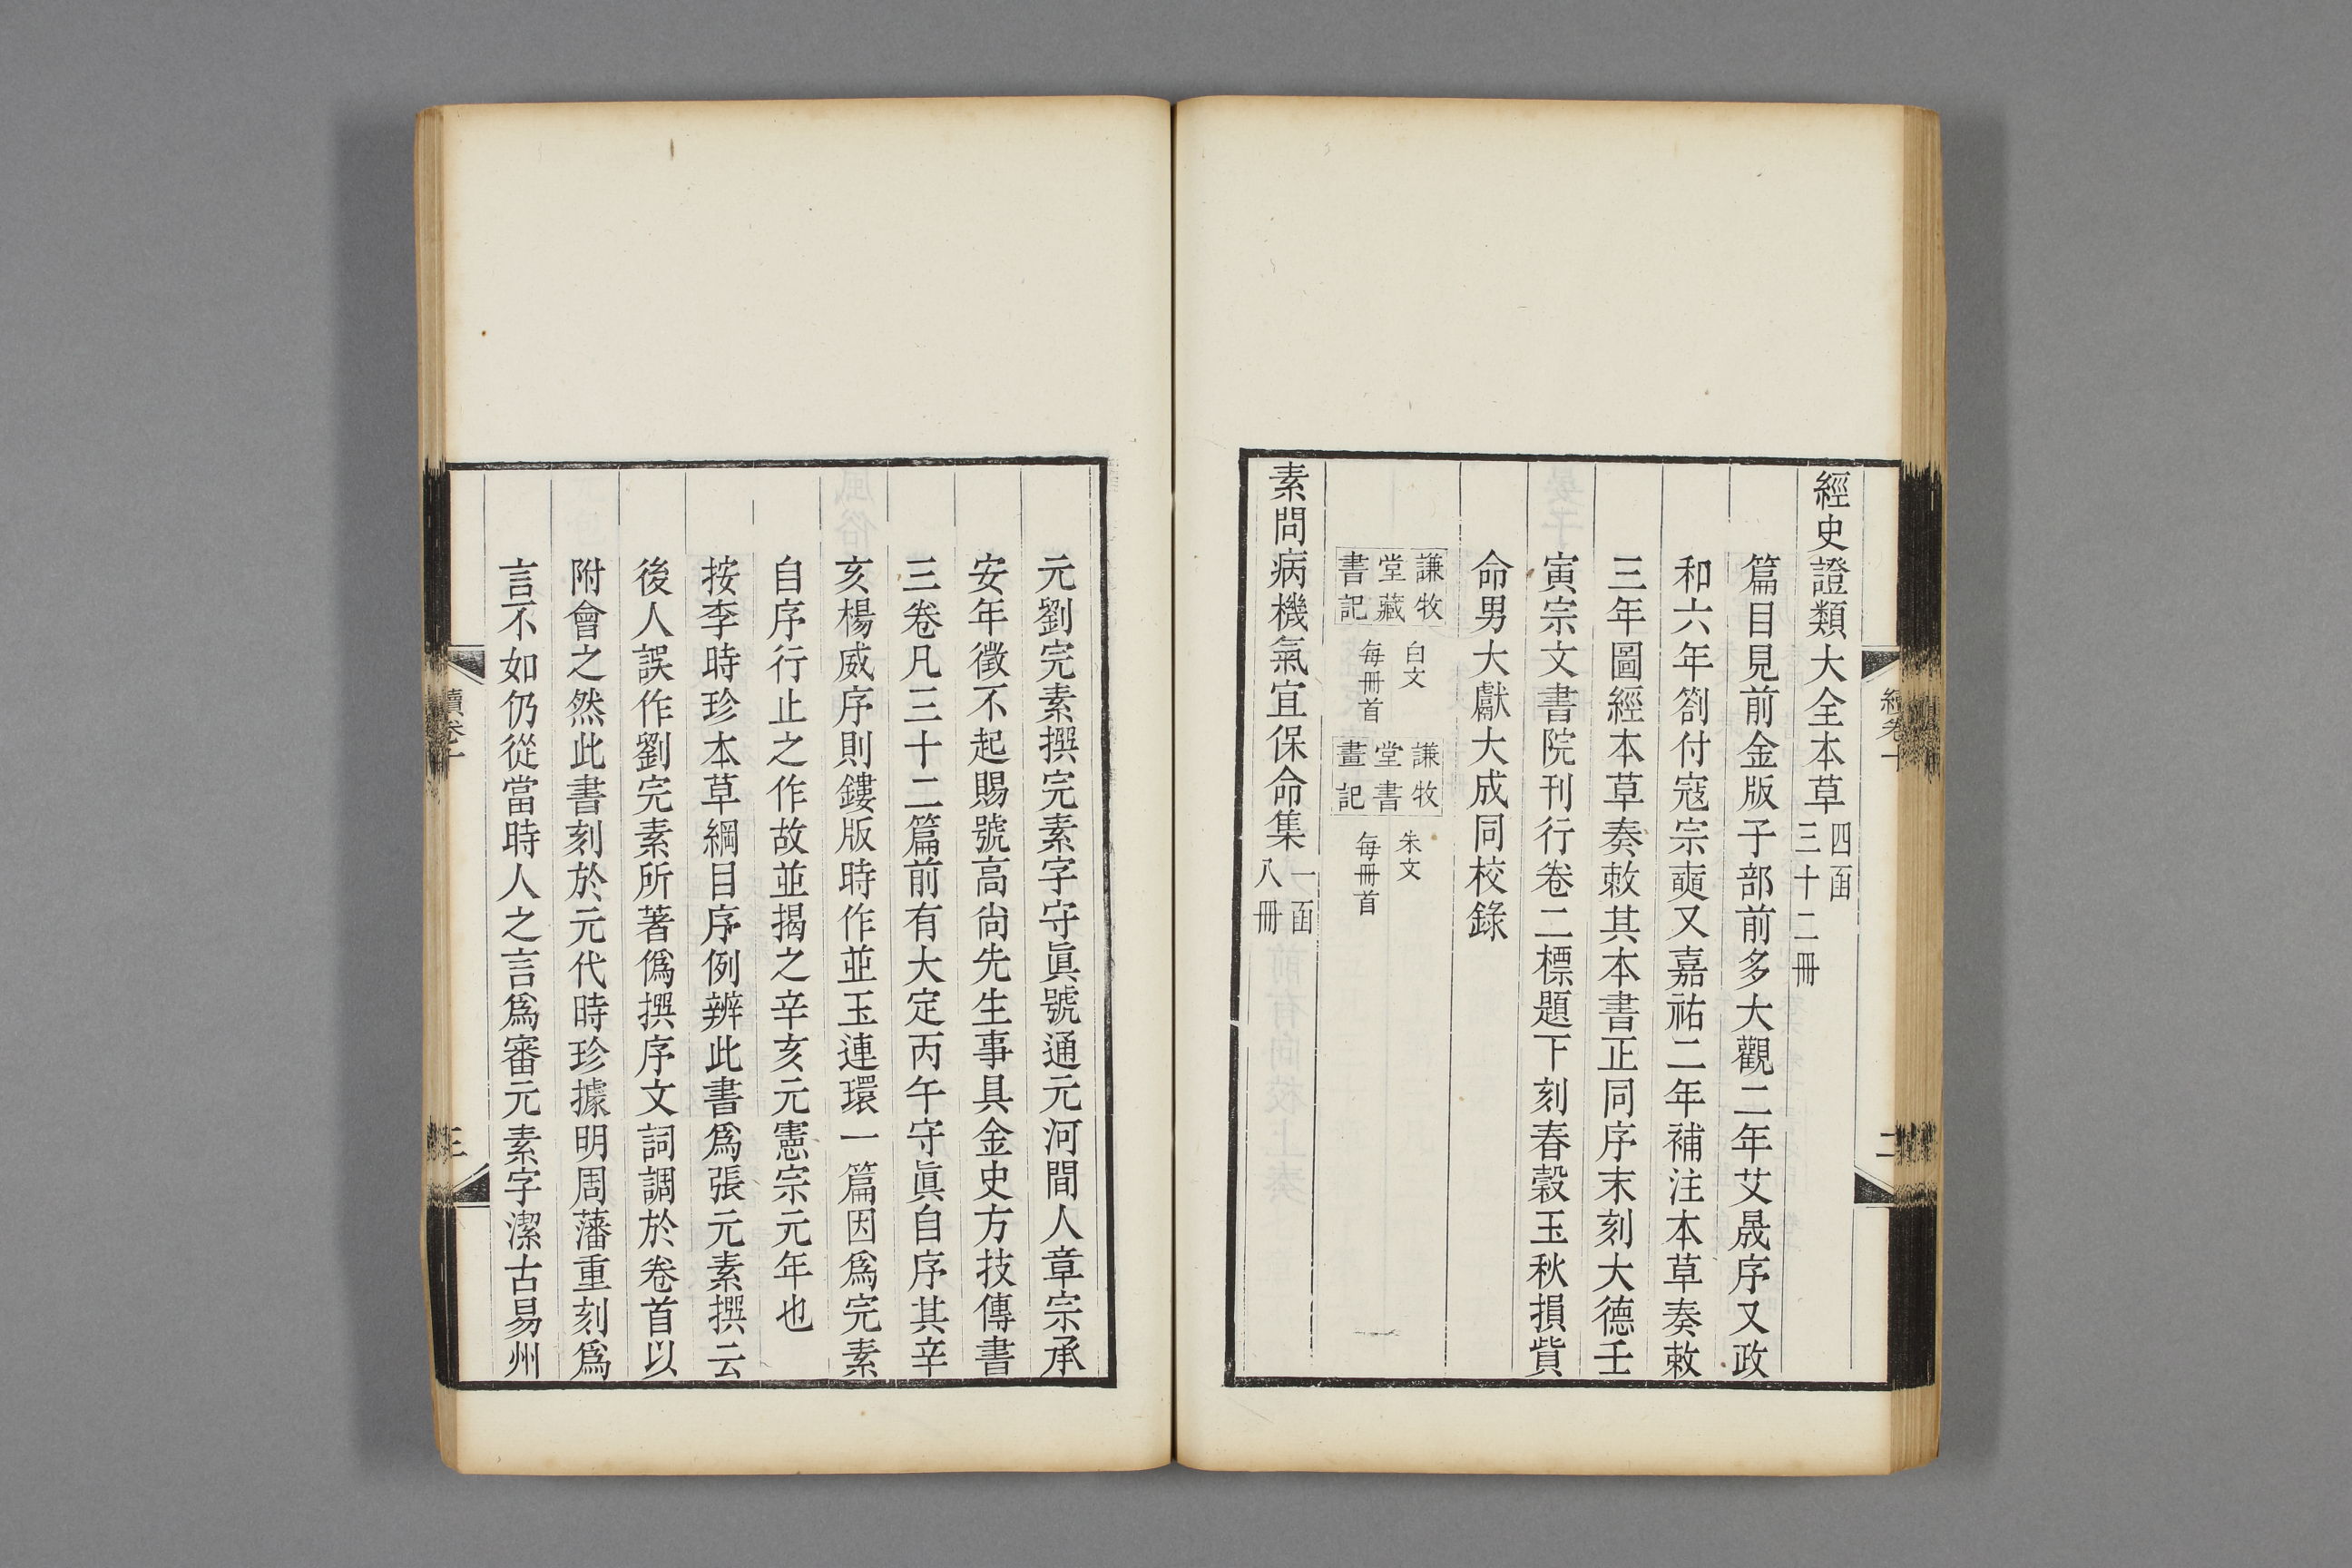 經史證類大全本草四函三十二冊
篇目見前金版子部前多大觀二年艾晟序又政
和六年劄付寇宗奭又嘉祐二年補注本草奏敕
三年圖經本草奏敕其本書正同序末刻大德壬
寅宗文書院刊行卷二標題下刻春穀玉秋損貲
命男大獻大成同校錄
謙牧堂藏書記 白文每冊首 謙牧堂書畫記 朱文每冊首
素問病機氣宜保命集一函八冊
元劉完素撰完素字守眞號通元河間人章宗承
安年徵不起賜號高尚先生事具金史方技傳書
三卷凡三十二篇前有大定丙午守眞自序其辛
亥楊威序則鏤版時作並玉連環一篇因爲完素
自序行止之作故並揭之辛亥元憲宗元年也
按李時珍本草綱目序例辨此書爲張元素撰云
後人誤作劉完素所著僞撰序文詞調於卷首以
附會之然此書刻於元代時珍據明周藩重刻爲
言不如仍從當時人之言爲審元素字潔古易州